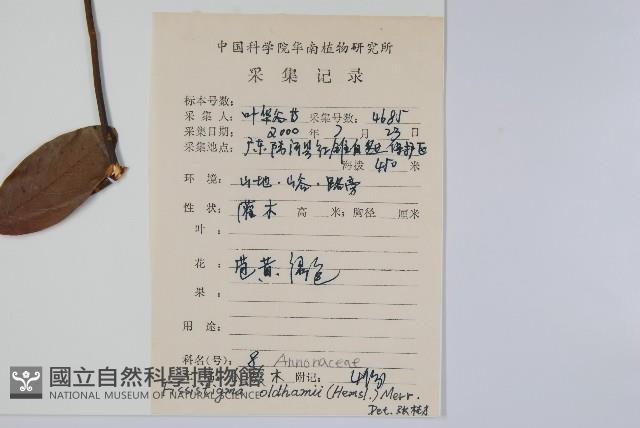 中国科学院华南植物研究所
采集记录
标本号数：
采集人：叶华谷 采集号数：4685
采集日期：2000 年 7 月 23 日
采集地点：广东陆河县红椎自然 保护区
海拔 450 米
环境：山地．山谷．路旁
性状：灌木 高 米；胸径 厘米
叶：
花：黄．绿色
果：
用途：
科名(号)：8 Annonaceae
木 附记：
Fissistigma oldhamii (Hemsl.) Merr.
Det.
國立自然科學博物館
NATIONAL MUSEUM OF NATURAL SCIENCE